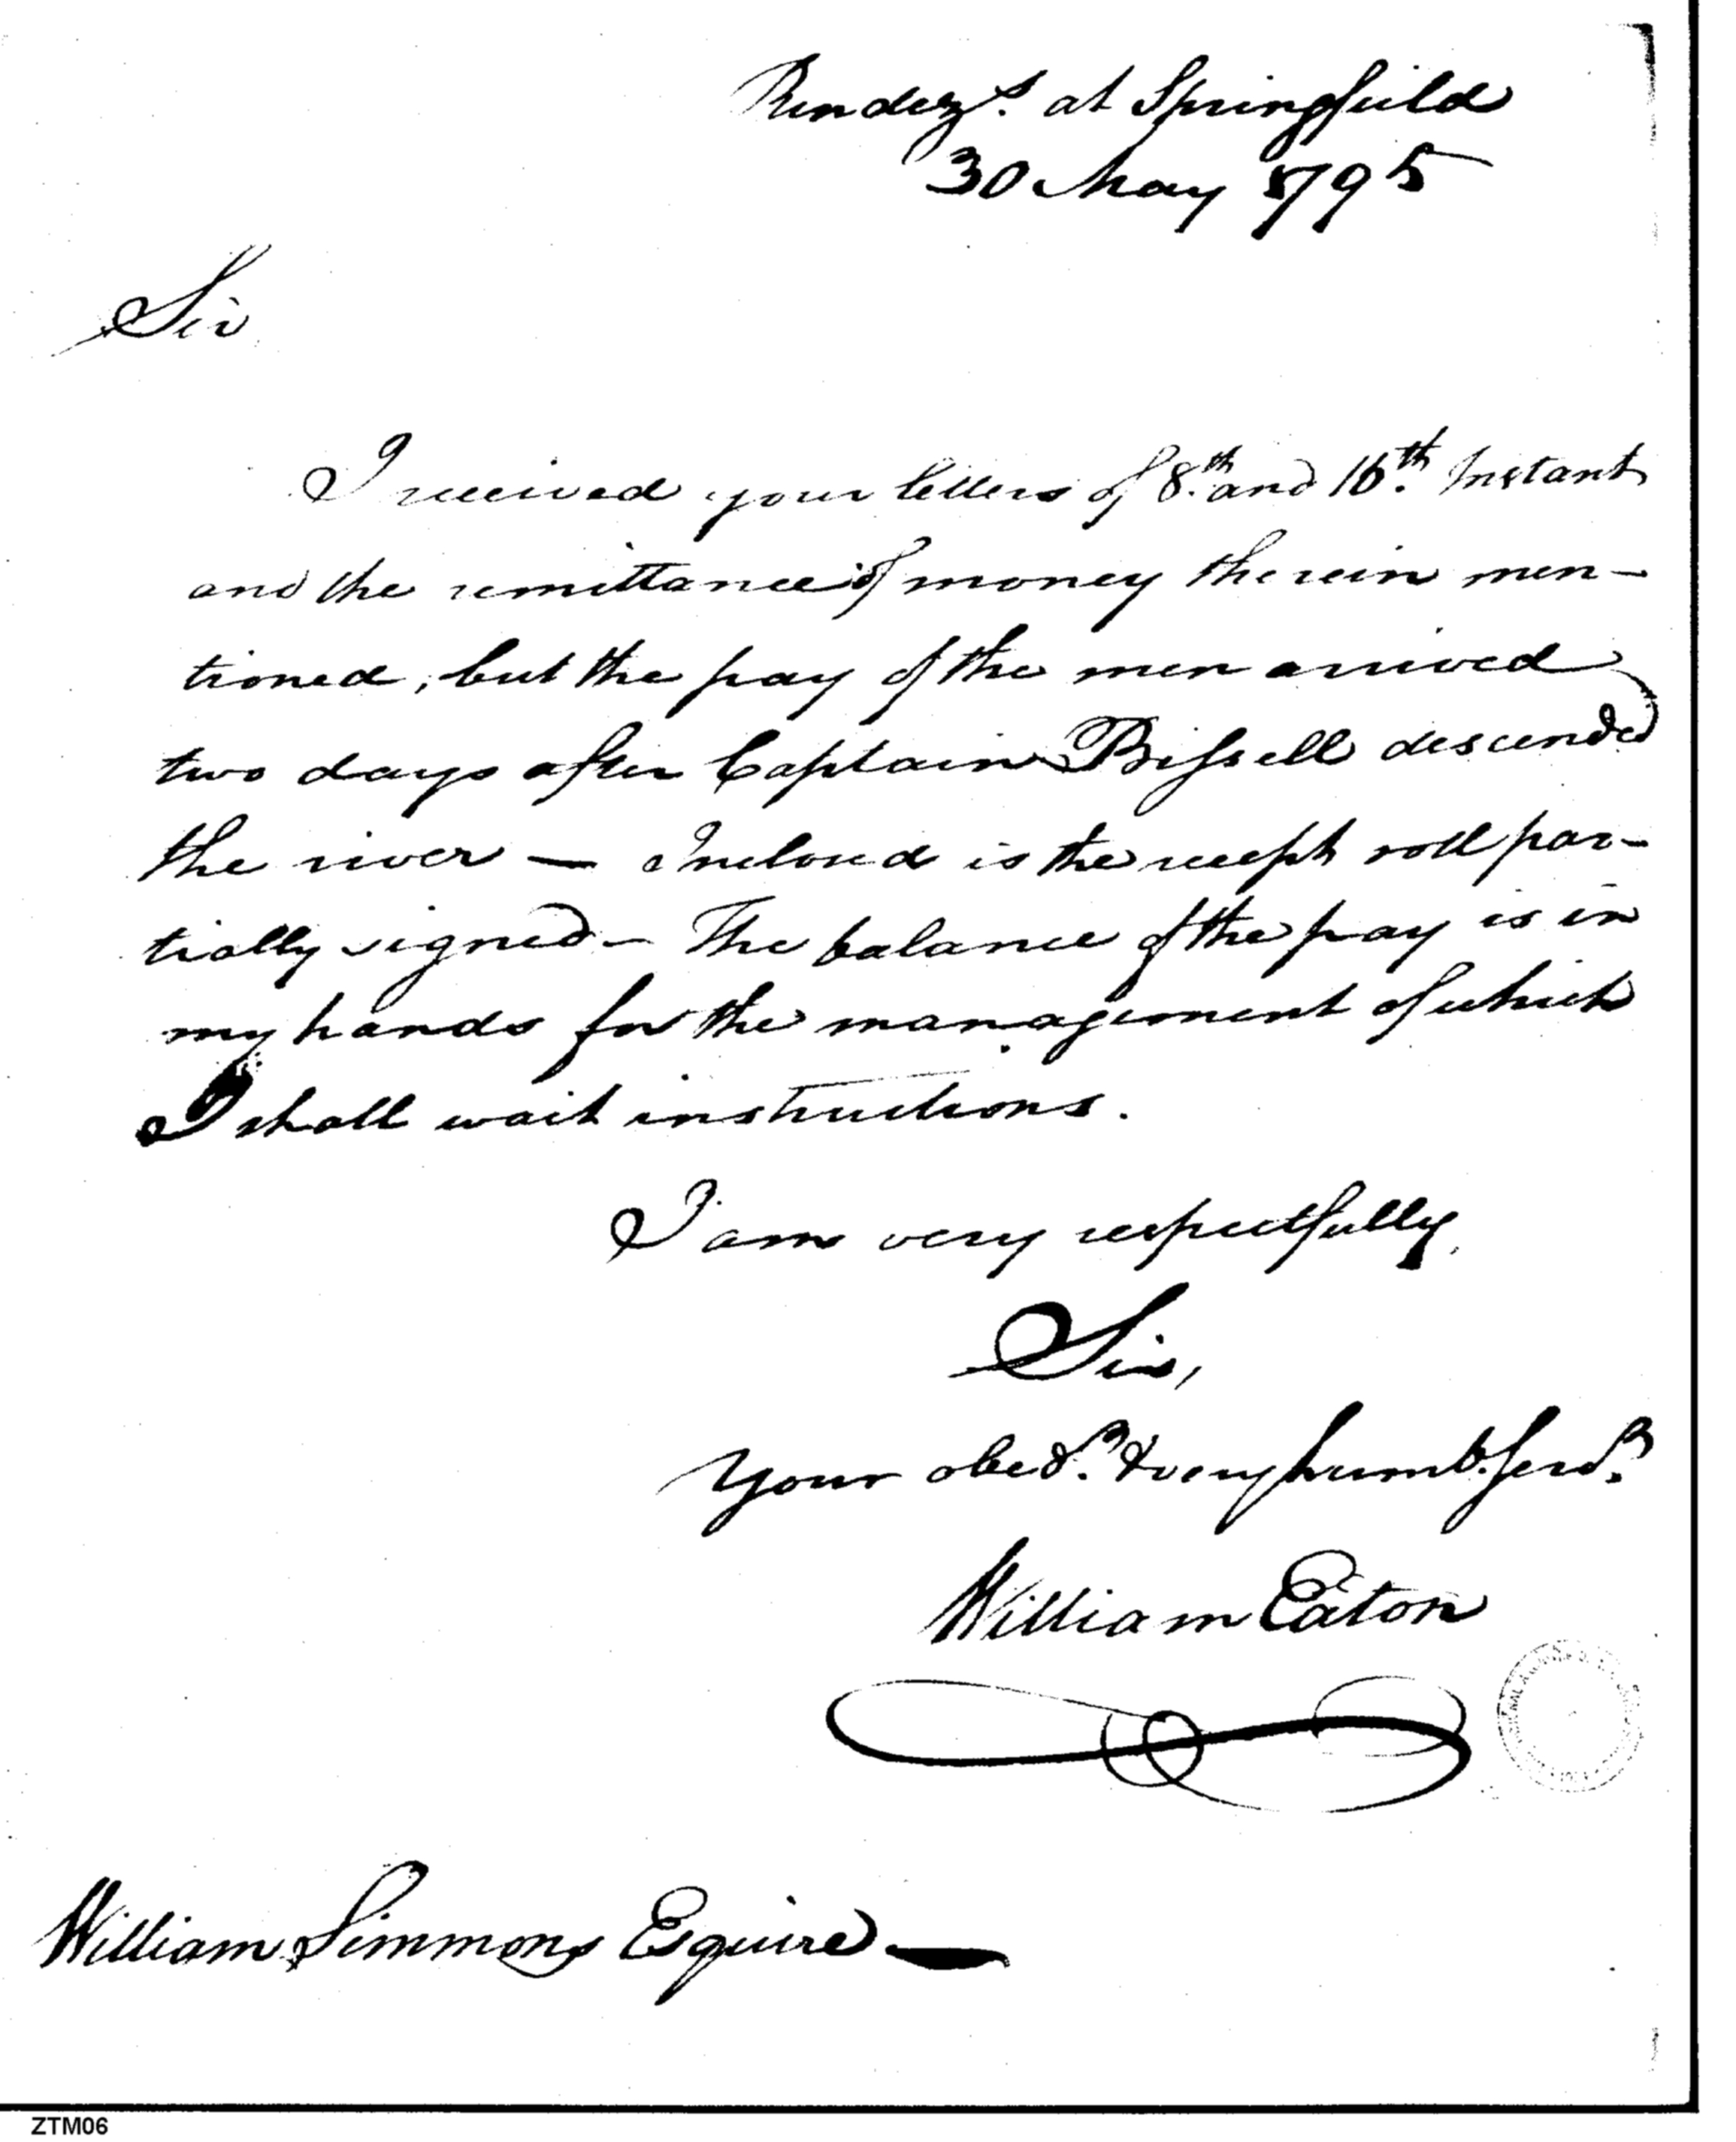 Rendezs. at Springfield
30 May 1795
Sir
I received your letters of 8th. and 16th. Instant
and the remittance of money therein men-
tioned, but the pay of the men arrived
two days after Captain Bissell descended
the river — Inclosed is the recept roll par-
tially signed - The balance of the pay is in
my hands for the management of which
I shall wait instructions.
I am very respectfully,
Sir,
Your obedt. & very humb. Servt.
William Eaton
William Simmons Esquire —
ZTM06